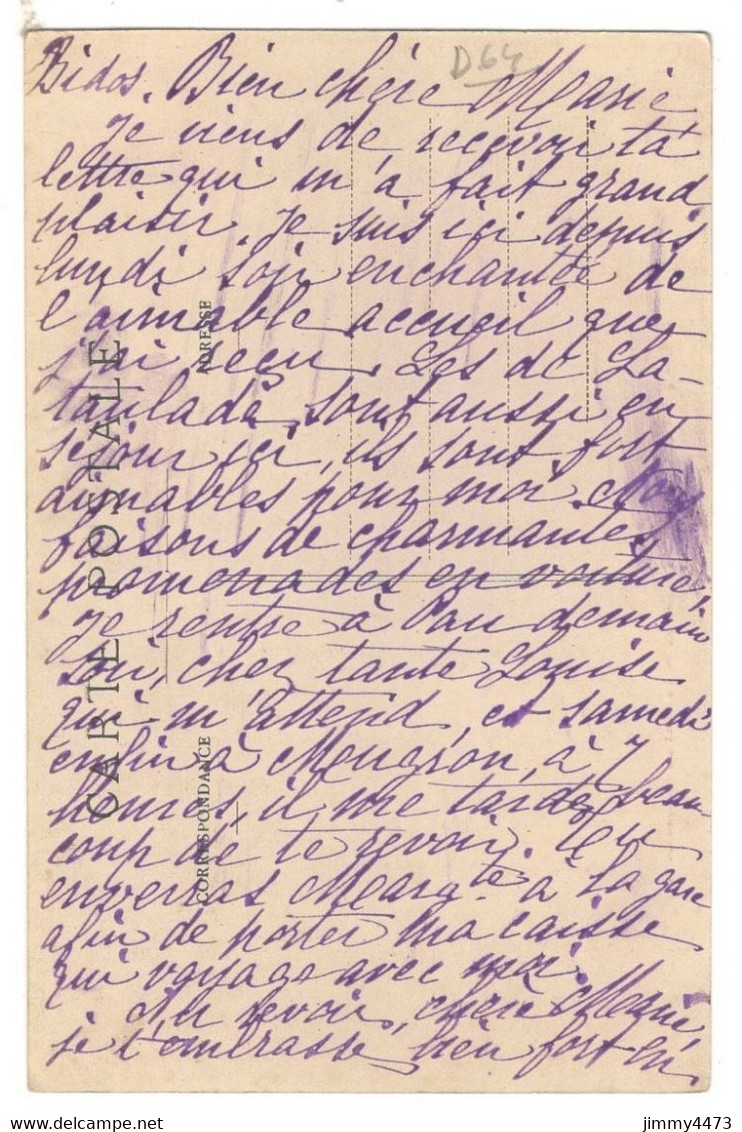 D64
Bidos. Bien chère Marie
Je viens de recevoir ta
lettre qui m'a fait grand
plaisir. Je suis ici depuis
lundi soir enchantée de
l'aimable accueil que
j'ai reçu. Les de La-
taulade sont aussi en
séjour ici, ils sont fort
aimables pour moi
faisons de charmantes
promenades en voiture,
Je rentre à Pau demain
soir, chez tante Louise
qui m'attend, et samedi
enfin à Mougron, à 7
heures, il me tarde beau-
coup de te revoir. Tu
enverras Marg te à la gare
afin de porter ma caisse
qui voyage avec moi.
Au revoir, chère Marie,
je t'embrasse bien fort en
CARTE POSTALE
CORRESPONDANCE
ADRESSE
jimmy4473